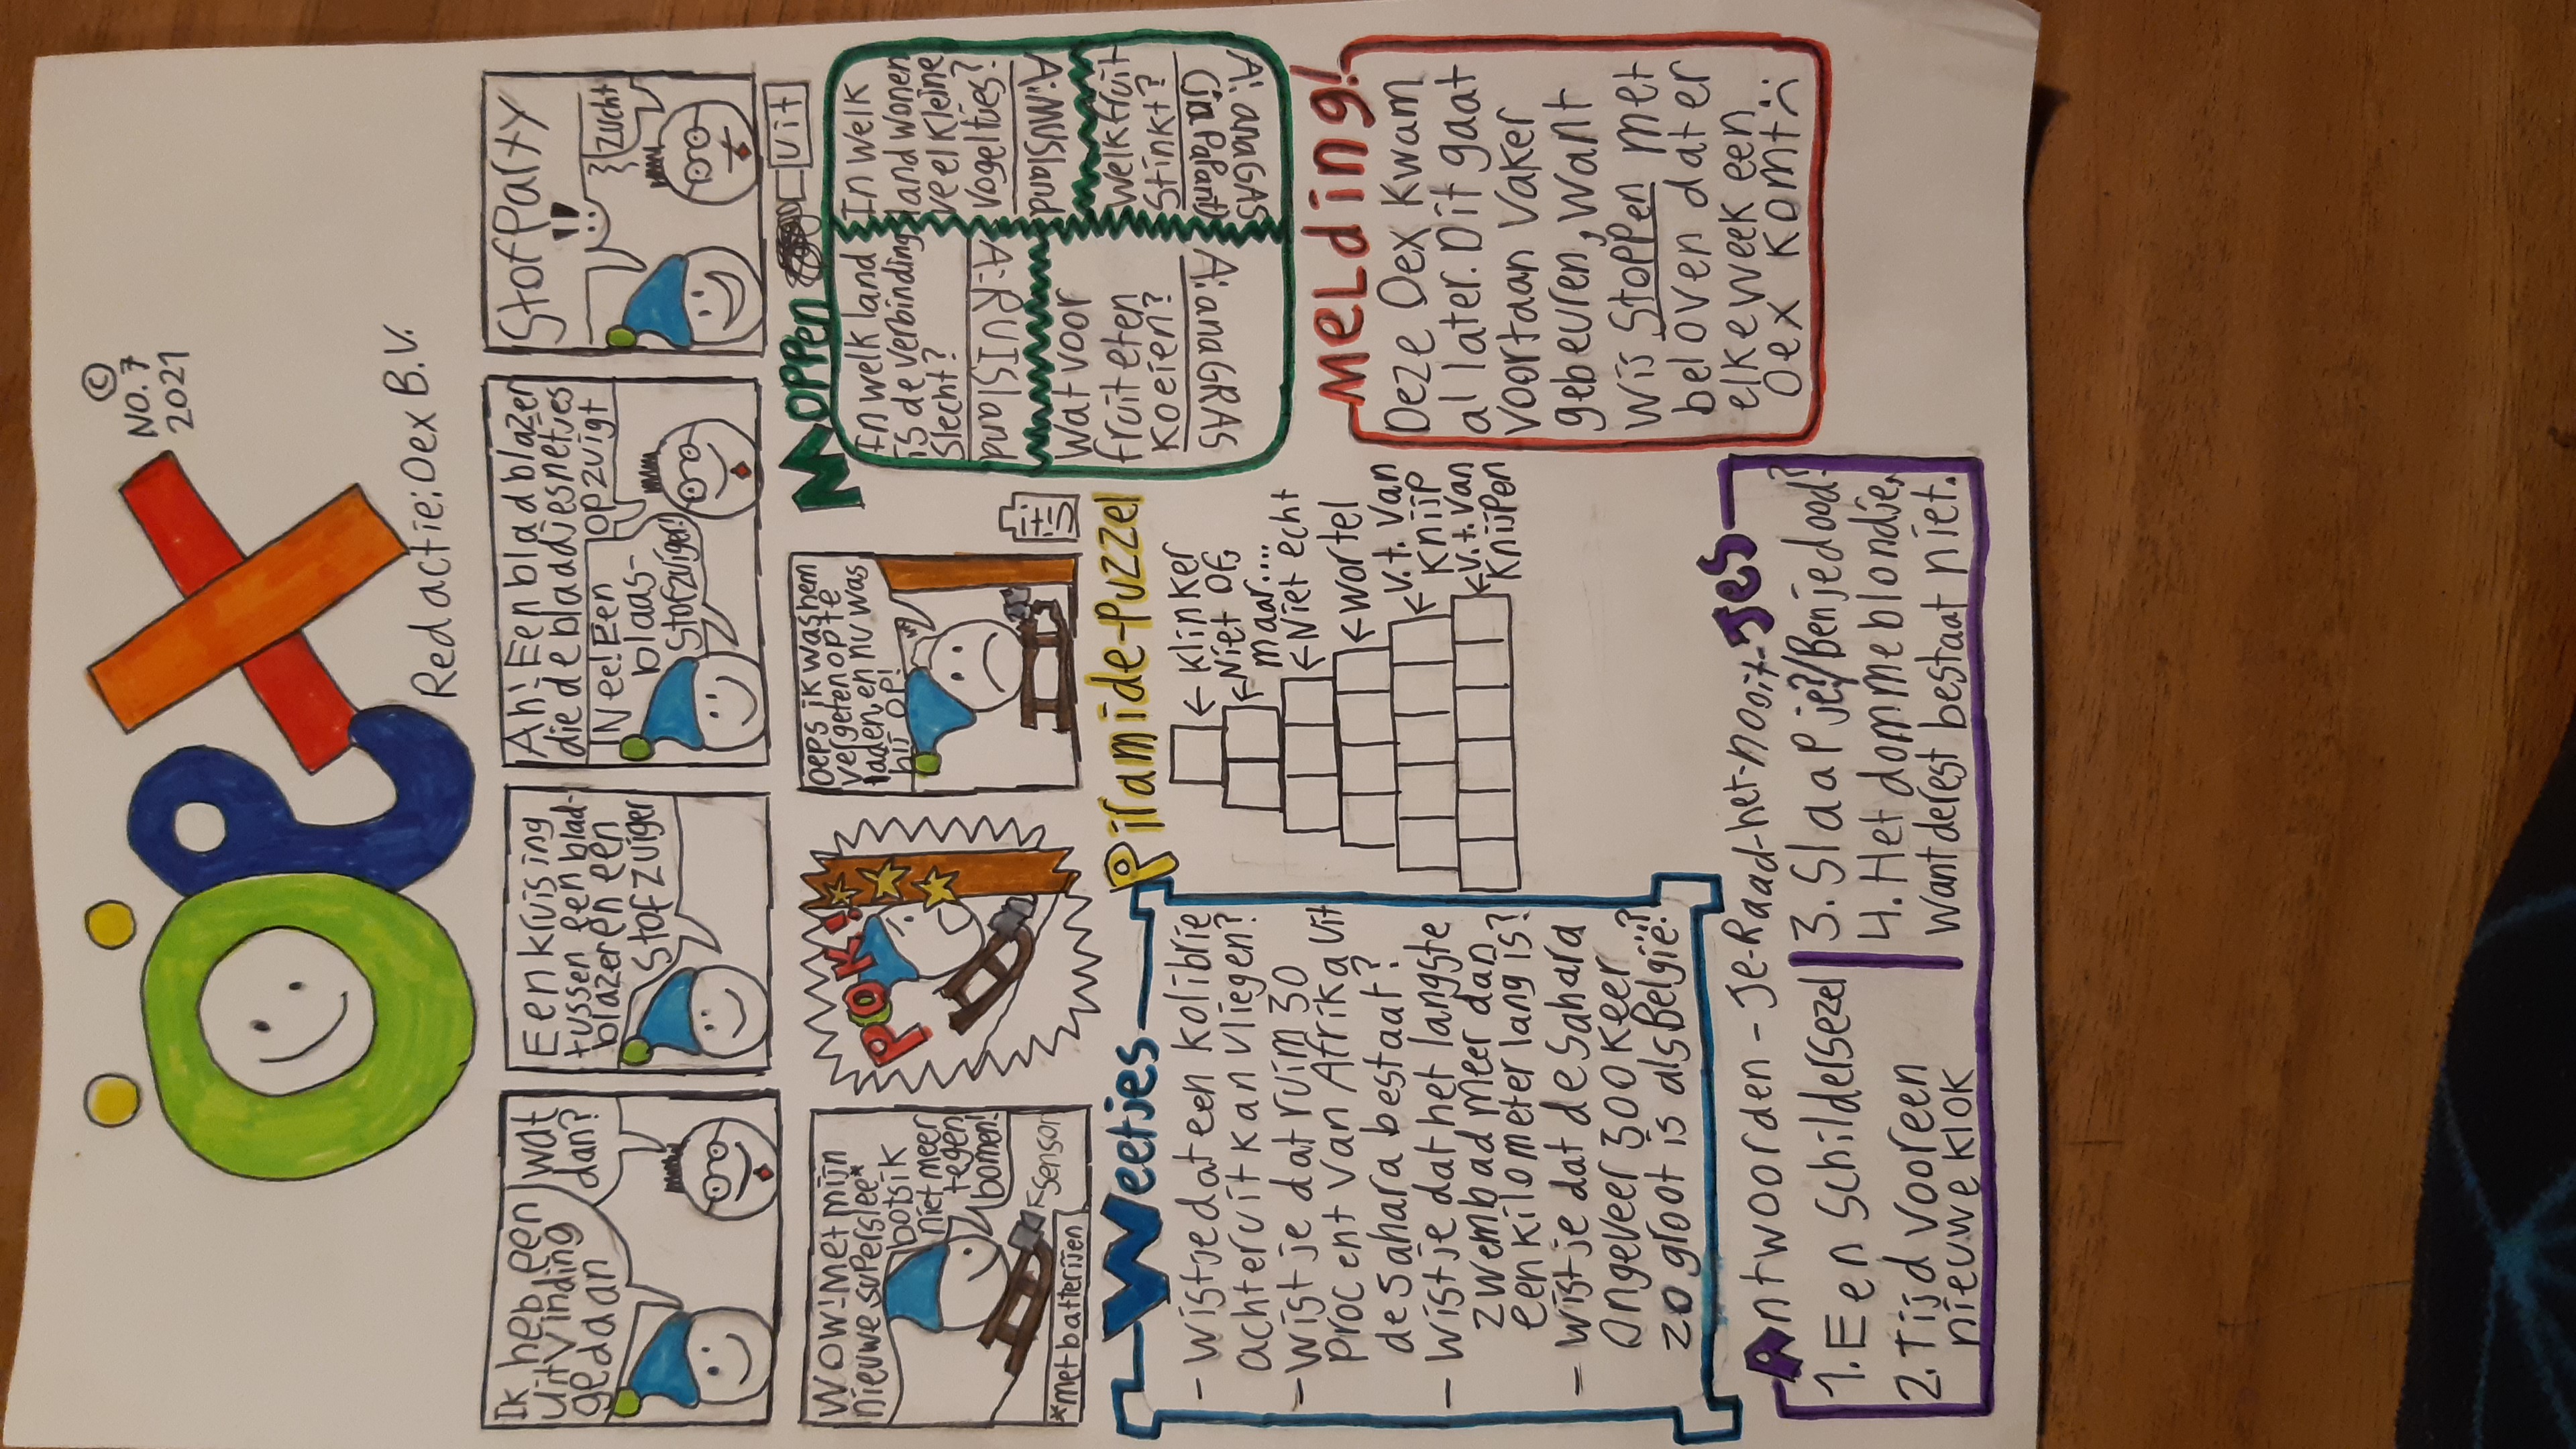 Öex
©
NO. 7
2021
Redactie: Oex B.V.
Ik heb een
uitvinding
gedaan
wat
dan?
Een kruising
tussen een blad-
blazer en een
stofzuiger
Ah! Een bladblazer
die de blaadjes netjes
opzuigt
Nee! Een
blaas-
stofzuiger!
Stofparty
!!
zucht
uit
WOW! Met mijn
nieuwe superslee*
bots ik
niet meer
tegen
bomen!
Sensor
*met batterijen
POK!
oeps ik was hem
vergeten op te
laden, en nu was
hij op!
uit!
Moppen
In welk land
is de verbinding
slecht?
A: RUISland
In welk
land wonen
veel kleine
vogeltjes?
A: MUSland
Wat voor
fruit eten
koeien?
A: anaGRAS
Welk fruit
stinkt?
A: anaGAS
Weetjes
- Wist je dat een kolibrie
achteruit kan vliegen?
- Wist je dat ruim 30
procent van Afrika uit
de Sahara bestaat?
- Wist je dat het langste
zwembad meer dan
een kilometer lang is?
- Wist je dat de Sahara
ongeveer 300 keer
zo groot is als België...?
Piramide-puzzel
← Klinker
← Niet of,
maar....
← Niet echt
← Wortel
← v.t. van
Knijp
← v.t. van
Knijpen
Melding!
Deze Oex Kwam
al later. Dit gaat
voortaan vaker
gebeuren, want
wij stoppen met
beloven dat er
elke week een
Oex komt :(
Antwoorden - Je-Raad-het-nooit-Jes
1. Een Schildersezel
2. Tijd voor een
nieuwe klok
3. Slaap je?/Ben je dood?
4. Het domme blondje,
want de rest bestaat niet.